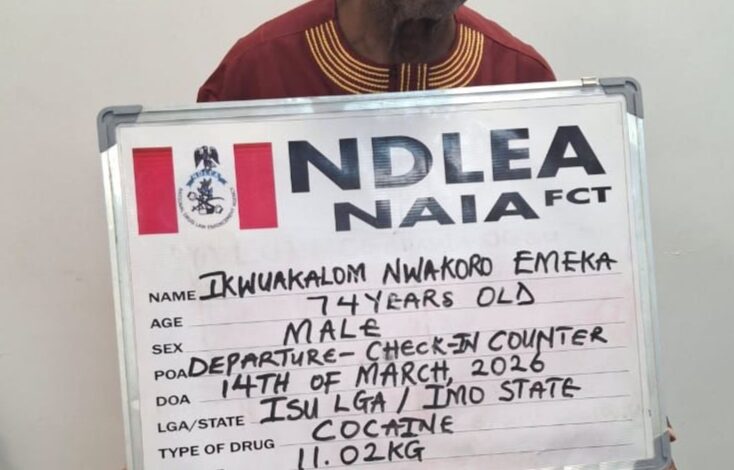 NDLEA
NAIA FCT
NAME IKWUAKALOM NWAKORO EMEKA
AGE 74 YEARS OLD
SEX MALE
POA DEPARTURE - CHECK-IN COUNTER
DOA 14TH OF MARCH, 2026
LGA/STATE ISU LGA / IMO STATE
TYPE OF DRUG COCAINE
11.02KG